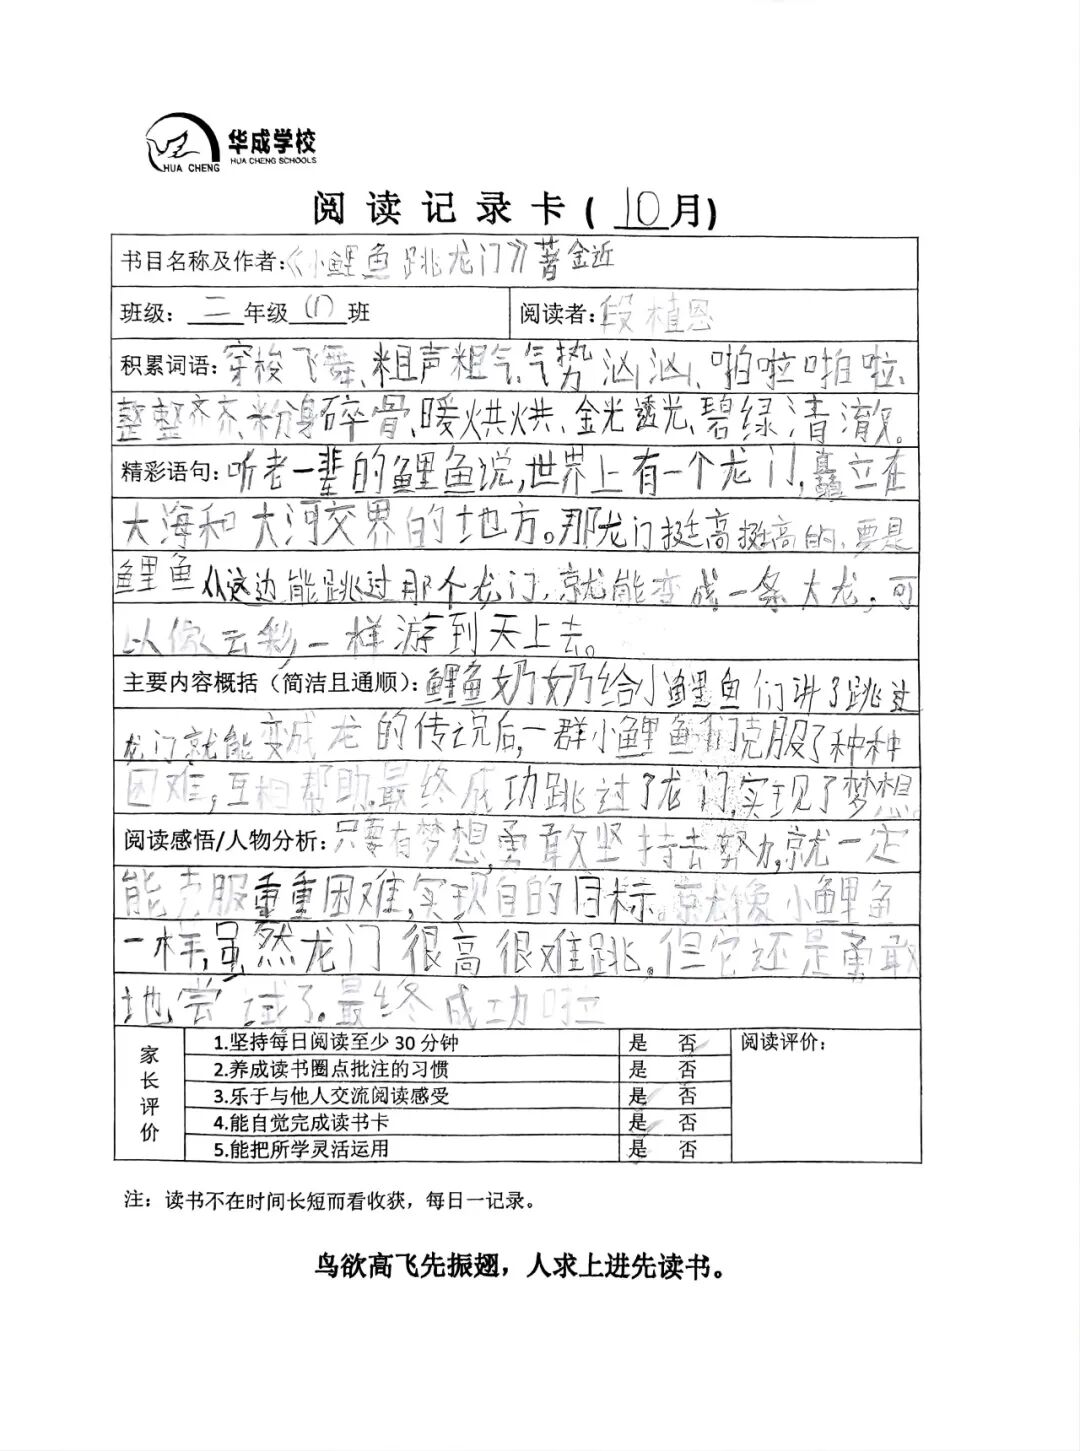 华成学校
HUA CHENG
HUA CHENG SCHOOLS
阅读记录卡(10月)
书目名称及作者:《小鲤鱼跳龙门》著金近
班级:二年级(1)班
阅读者:段植恩
积累词语:穿梭飞舞、粗声粗气、气势汹汹、啪啦啪啦、
整整齐齐、粉身碎骨、暖烘烘、金光透光、碧绿清澈。
精彩语句:听老一辈的鲤鱼说,世界上有一个龙门,矗立在
大海和大河交界的地方。那龙门挺高挺高的,要是
鲤鱼从这边能跳过那个龙门,就能变成一条大龙,可
以像云彩一样游到天上去。
主要内容概括(简洁且通顺):鲤鱼奶奶给小鲤鱼们讲了跳过
龙门就能变成龙的传说后,一群小鲤鱼们克服了种种
困难,互相帮助,最终成功跳过了龙门,实现了梦想
阅读感悟/人物分析:只要有梦想,勇敢坚持去努力,就一定
能克服重重困难,实现自的目标。就像小鲤鱼
一样,虽然龙门很高很难跳,但它还是勇敢
地尝试了,最终成功啦
家长评价
1.坚持每日阅读至少30分钟 是 否
2.养成读书圈点批注的习惯 是 否
3.乐于与他人交流阅读感受 是 否
4.能自觉完成读书卡 是 否
5.能把所学灵活运用 是 否
阅读评价:
注:读书不在时间长短而看收获,每日一记录。
鸟欲高飞先振翅,人求上进先读书。